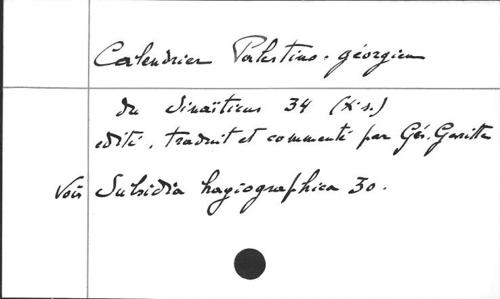 Calendrier Palestino-géorgien
du Sinaïticus 34 (Xe s.)
édité, traduit et commenté par Gér. Garitte
Voir Subsidia hagiographica 30.